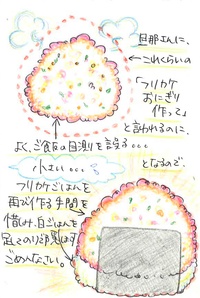 旦那さんに、
これくらいの
「フリカケ
おにぎり
作って」
と言われるのに、
よく、ご飯の目測りを誤る…
小さい。。。
となるので、
フリカケごはんを
再び作る手間を
惜しみ、白ごはんを
足してのりで
ごめんなさい。